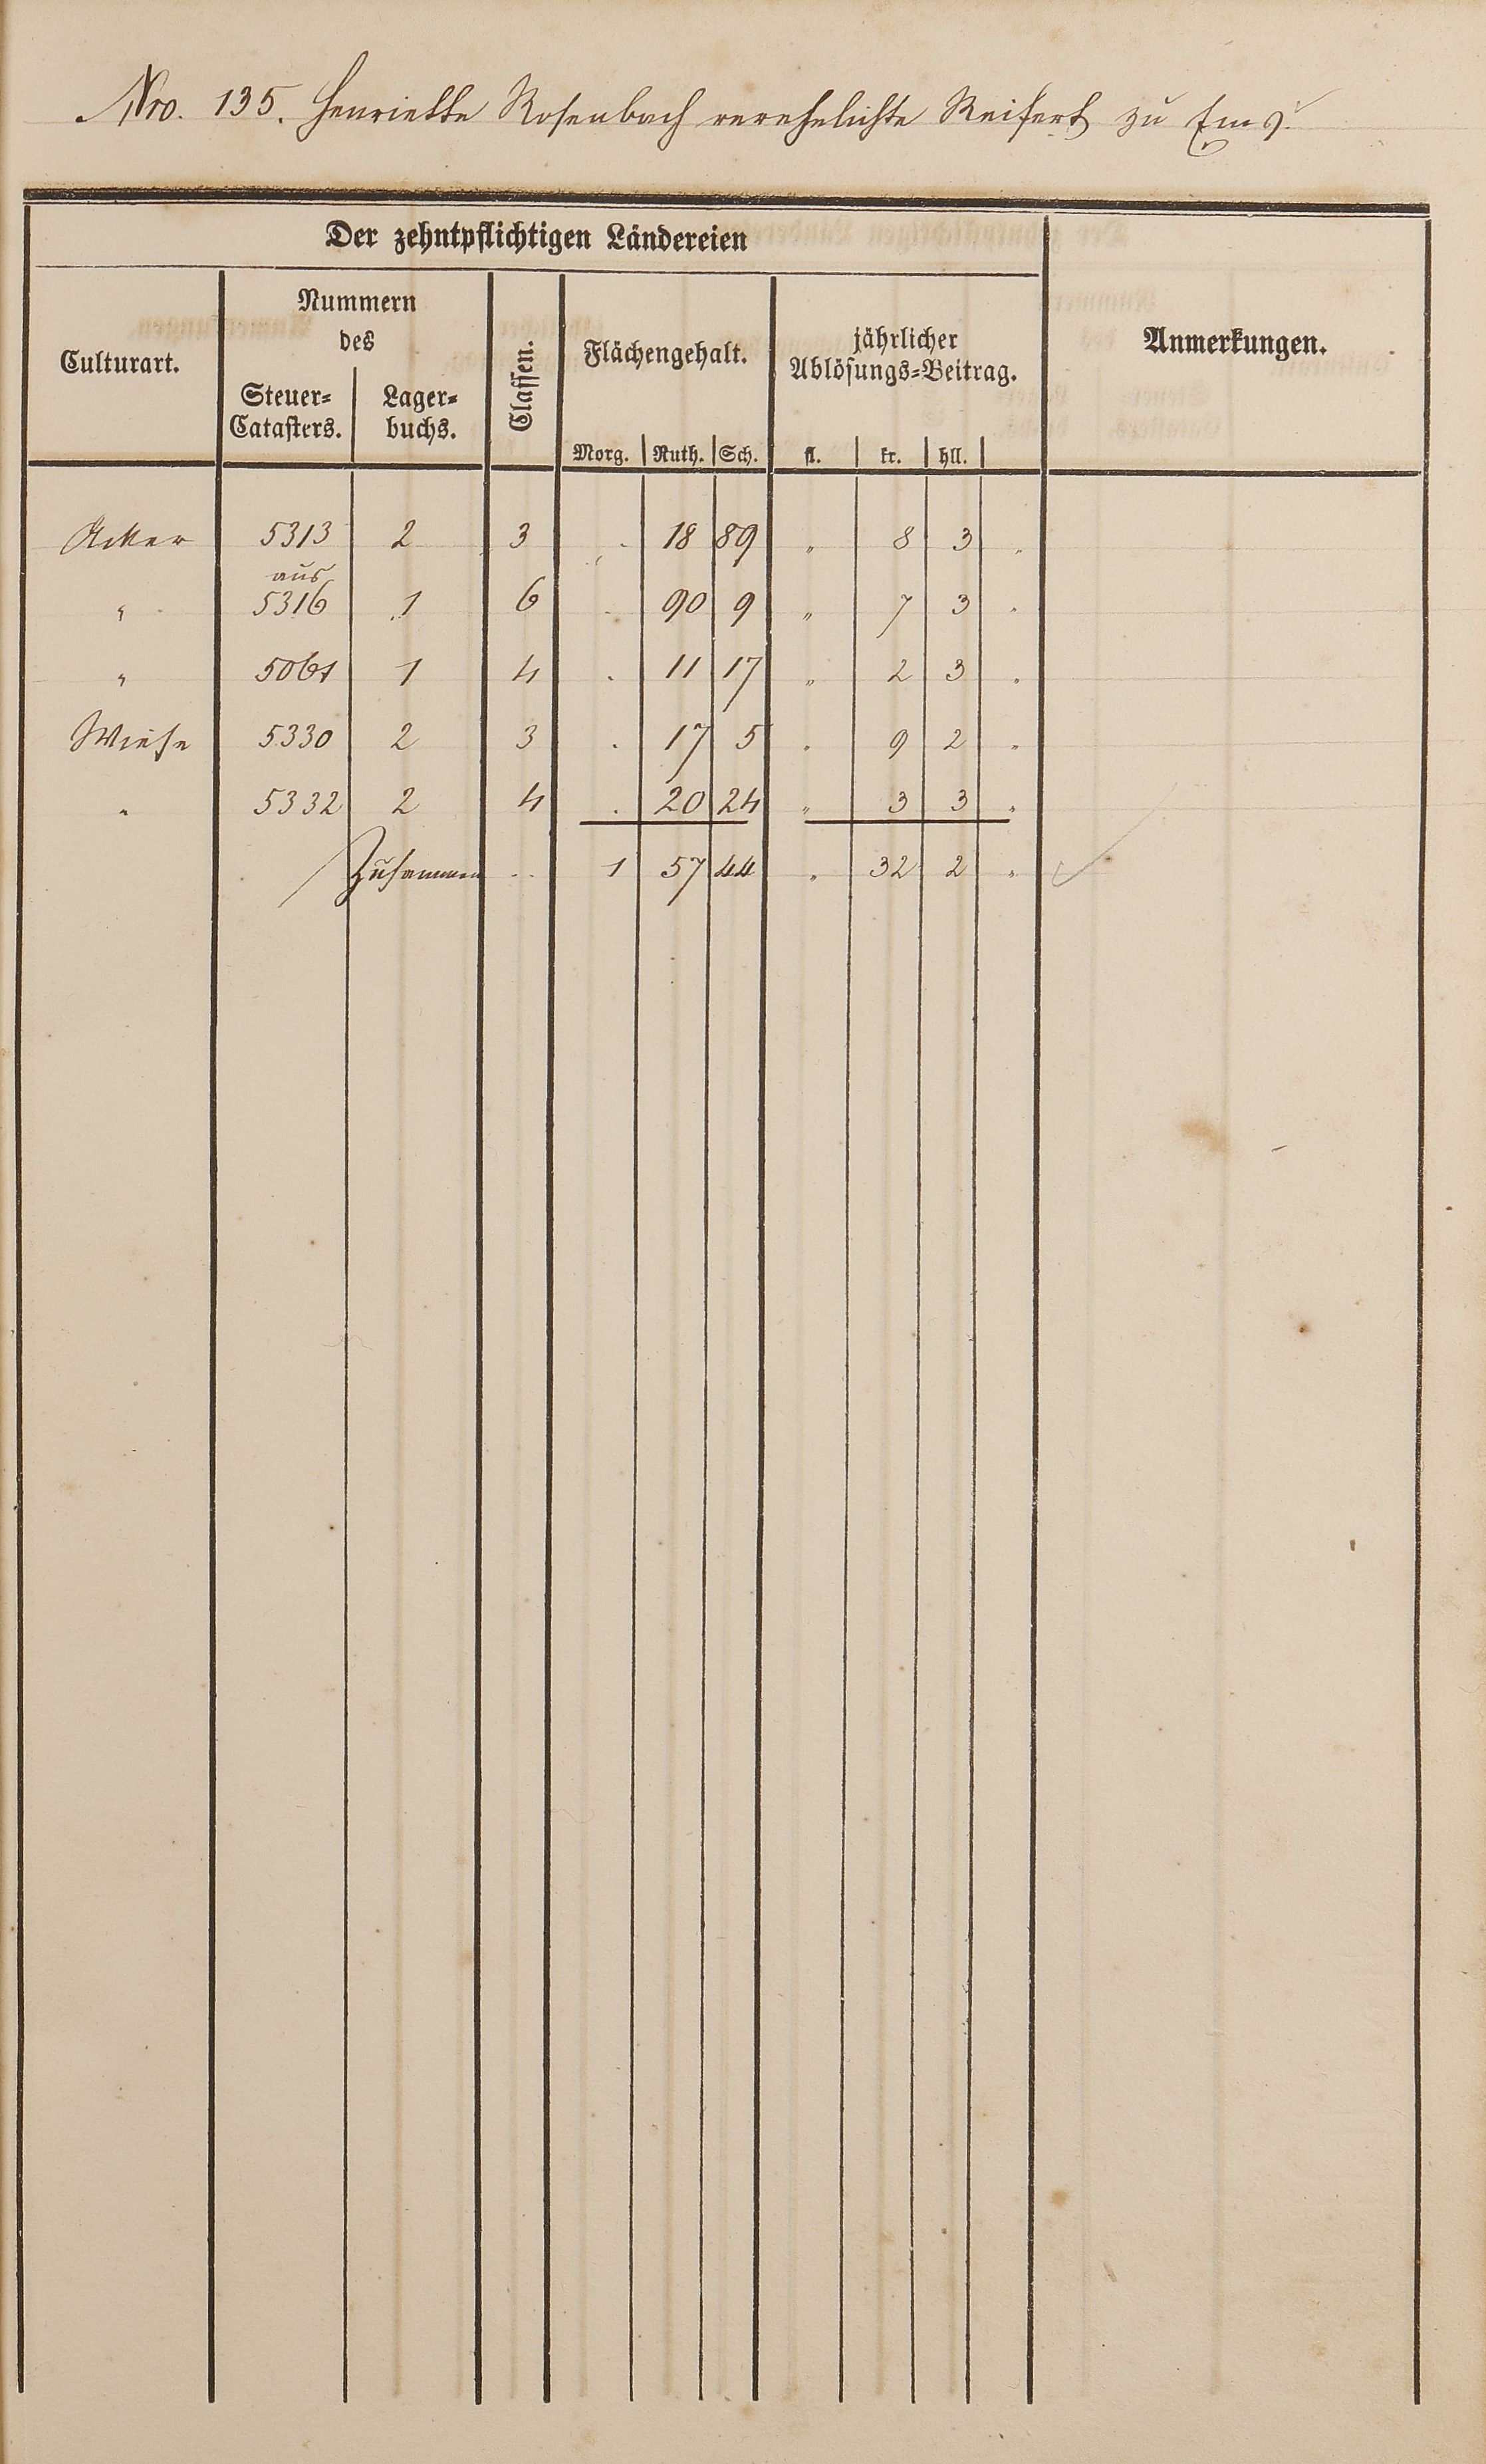 Nro. 135. Henriette Rosenbach verehelichte Reifert zu Ems.
Der zehntpflichtigen Ländereien
Culturart.
Nummern
des
Steuer-
Catasters.
Lager-
buchs.
Classen.
Flächengehalt.
Morg. Ruth. Sch.
jährlicher
Ablösungs-Beitrag.
fl. kr. hll.
Anmerkungen.
Acker 5313 2 3 . 18 89 „ 8 3 „
aus
„ 5316 1 6 . 90 9 „ 7 3 „
„ 5061 1 4 . 11 17 „ 2 3 „
Wiese 5330 2 3 . 17 5 „ 9 2 „
„ 5332 2 4 . 20 24 „ 3 3 „
Zusammen .. 1 57 44 „ 32 2 „